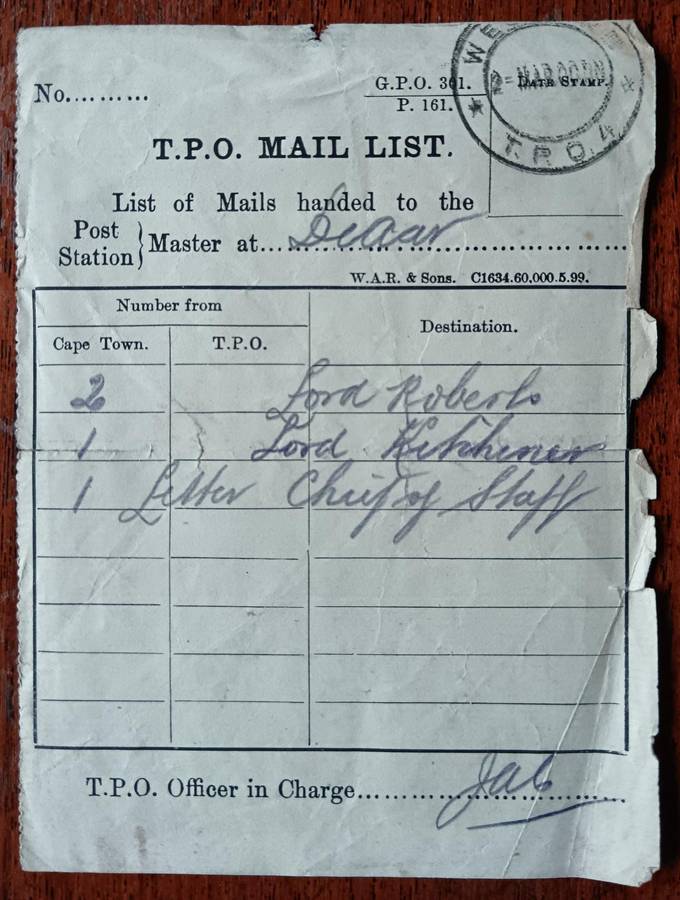 No.........
G.P.O. 361.
P. 161.
DATE STAMP.
T.P.O. 4
T.P.O. MAIL LIST.
List of Mails handed to the
Post
Station } Master at... De Aar
W.A.R. & Sons. C1634.60,000.5.99.
Number from
Cape Town. T.P.O. Destination.
2 Lord Roberts
1 Lord Kitchener
1 Letter Chief of Staff
T.P.O. Officer in Charge...